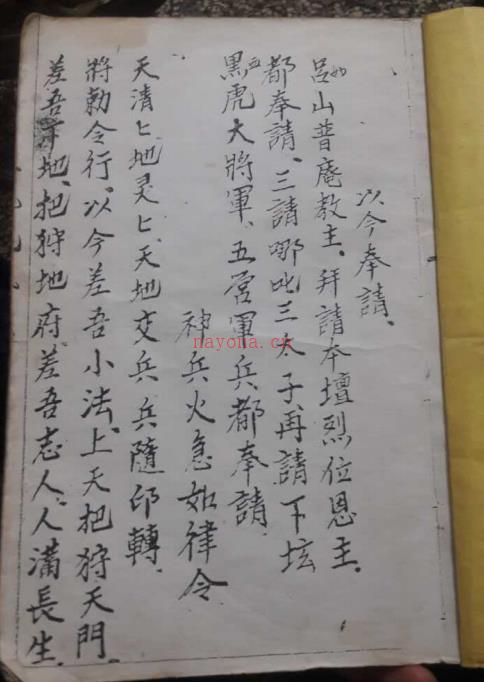 以今奉請、
呂山普庵教主、拜請本壇烈位恩主.
都奉請、三請哪吒三太子再請下坛
黑虎大將軍、五营軍兵、都奉請、
神兵火急如律令
天清匕、地灵匕、天地交兵、兵隨印轉、
將勅令行、以今差吾小法、上天把狩天門、
差吾 地、把狩地府、差吾志人、人滿長生、
nayona.cn